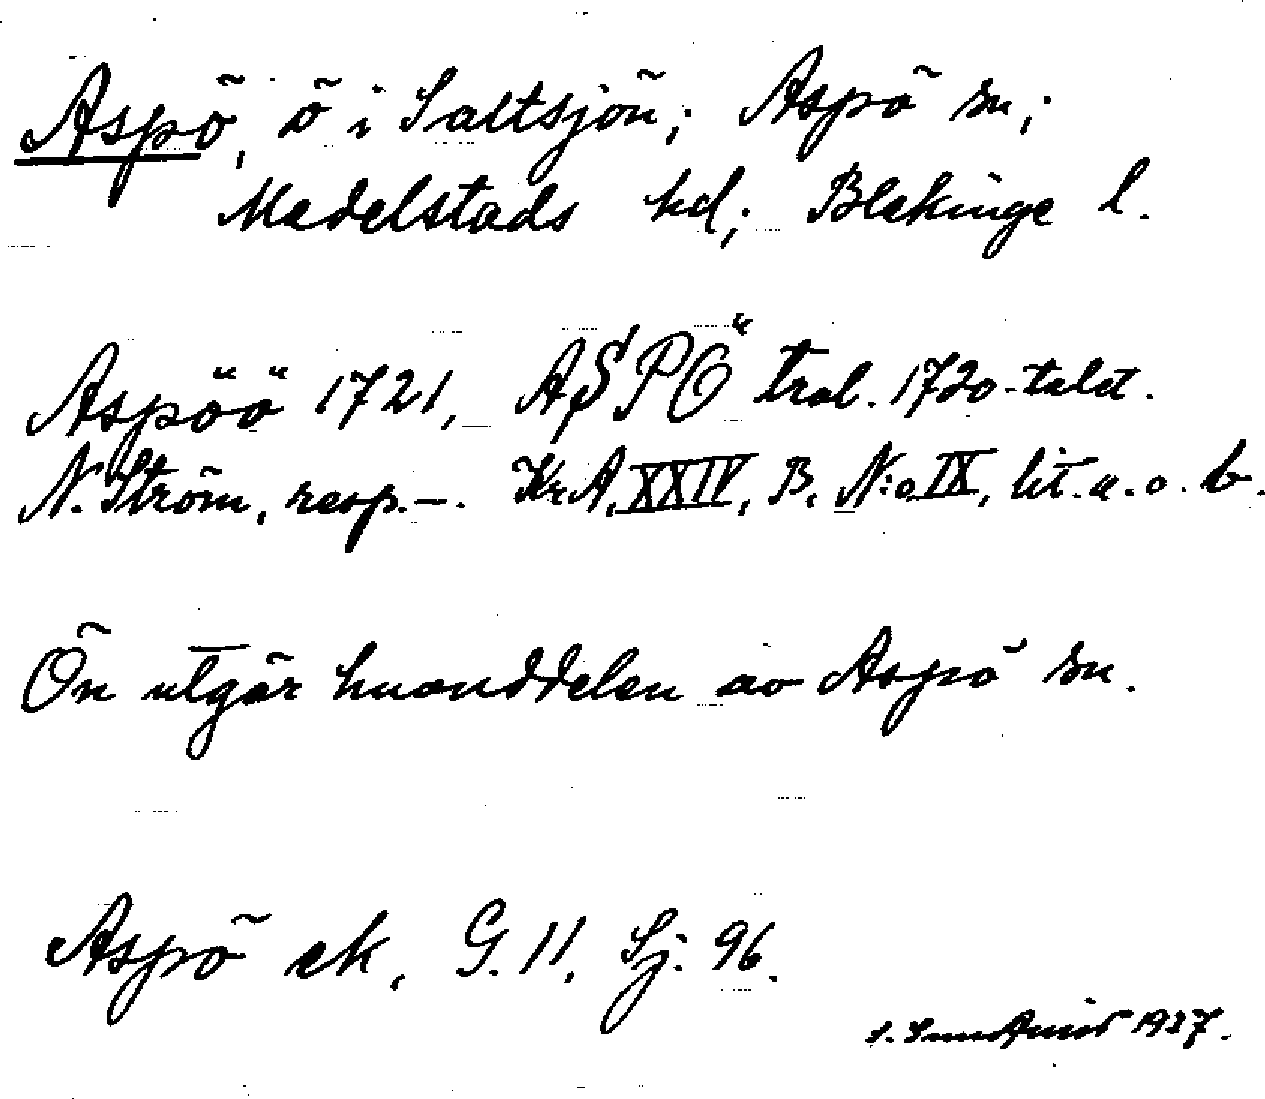 Aspö, ö i Saltsjön; Aspö sn;
Medelstads hd; Blekinge l.
Aspöö 1721, ASPÖ trol. 1720-talet.
N. Ström, resp. –. KrA, XXIV, B, N:o IX, lit. a. o. b.
Ön utgör huvuddelen av Aspö sn.
Aspö ek, G. 11, Sj. 96.
1937.